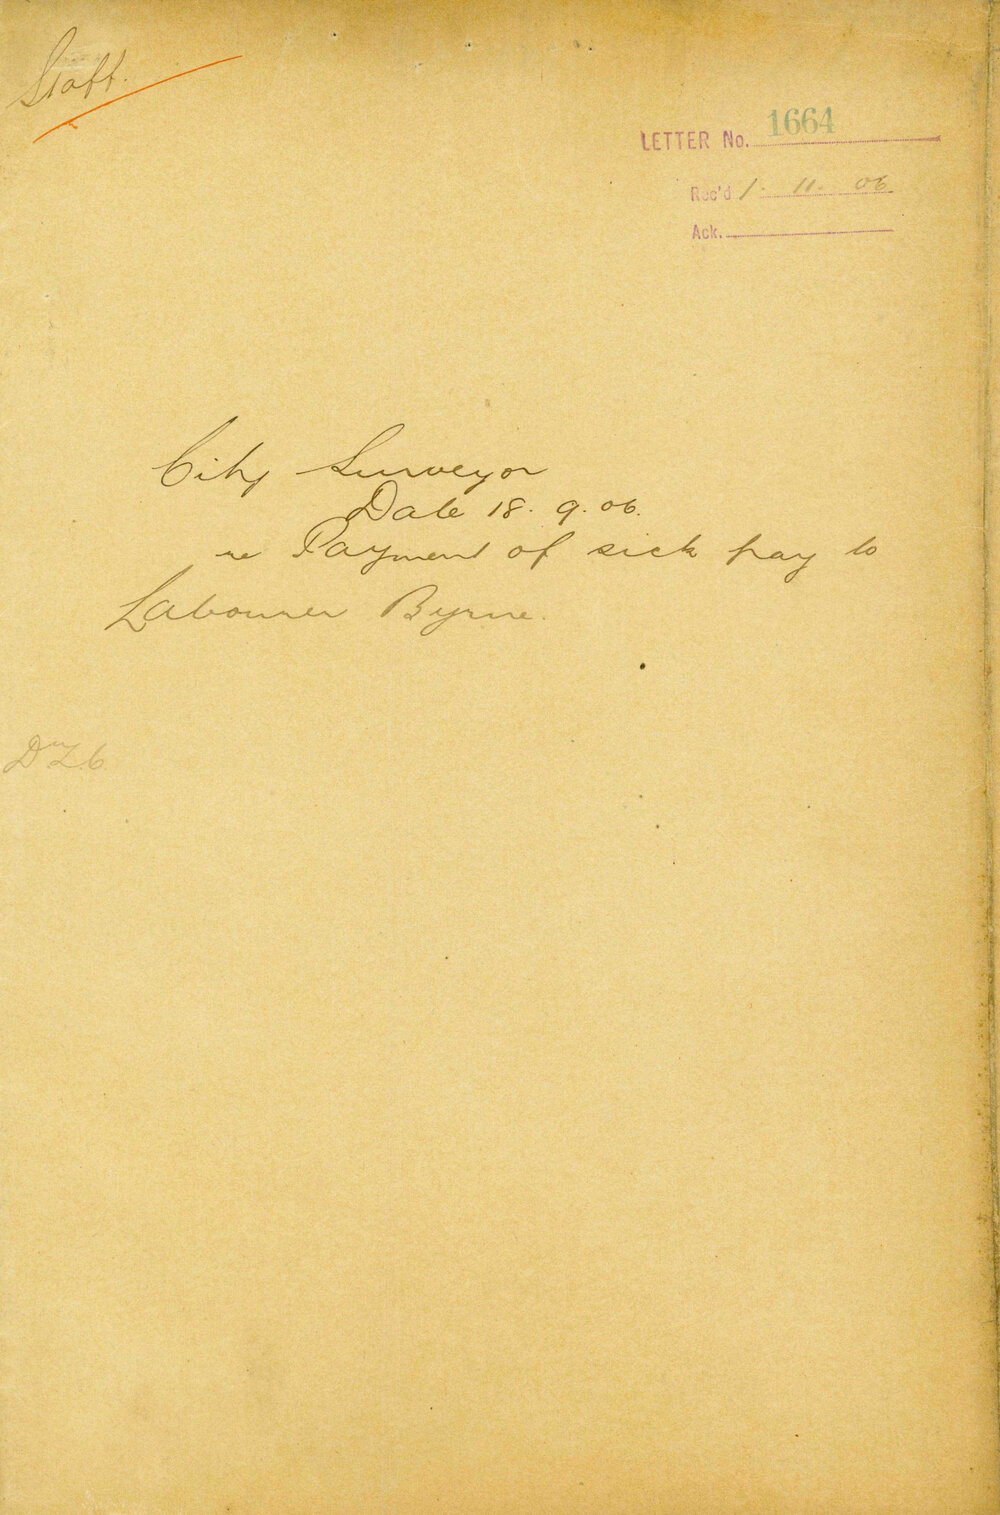 Staff.
LETTER No. 1664
Rec'd 1. 11. 06
Ack.
City Surveyor
Date 18. 9. 06.
re Payment of sick pay to
Labourer Byrne.